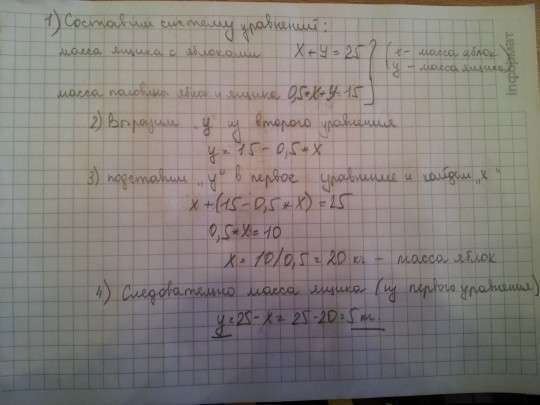 1) Составим систему уравнений:
масса ящика с яблоками x+y=25 (x- масса яблок
y- масса ящика)
масса половины яблок и ящика 0,5*x+y=15
2) Выразим "y" из второго уравнения
y=15-0,5*x
3) подставим "y" в первое уравнение и найдем "x"
x+(15-0,5*x)=25
0,5*x=10
x=10/0,5=20 кг - масса яблок
4) Следовательно масса ящика (из первого уравнения)
y=25-x=25-20=5 кг.
информат